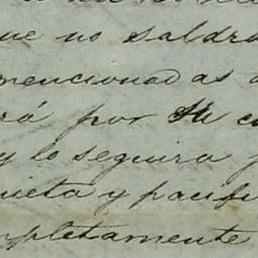 que no saldrá
mencionadas
rá por su c
y lo seguira
uieta y pacifi
mpletamente